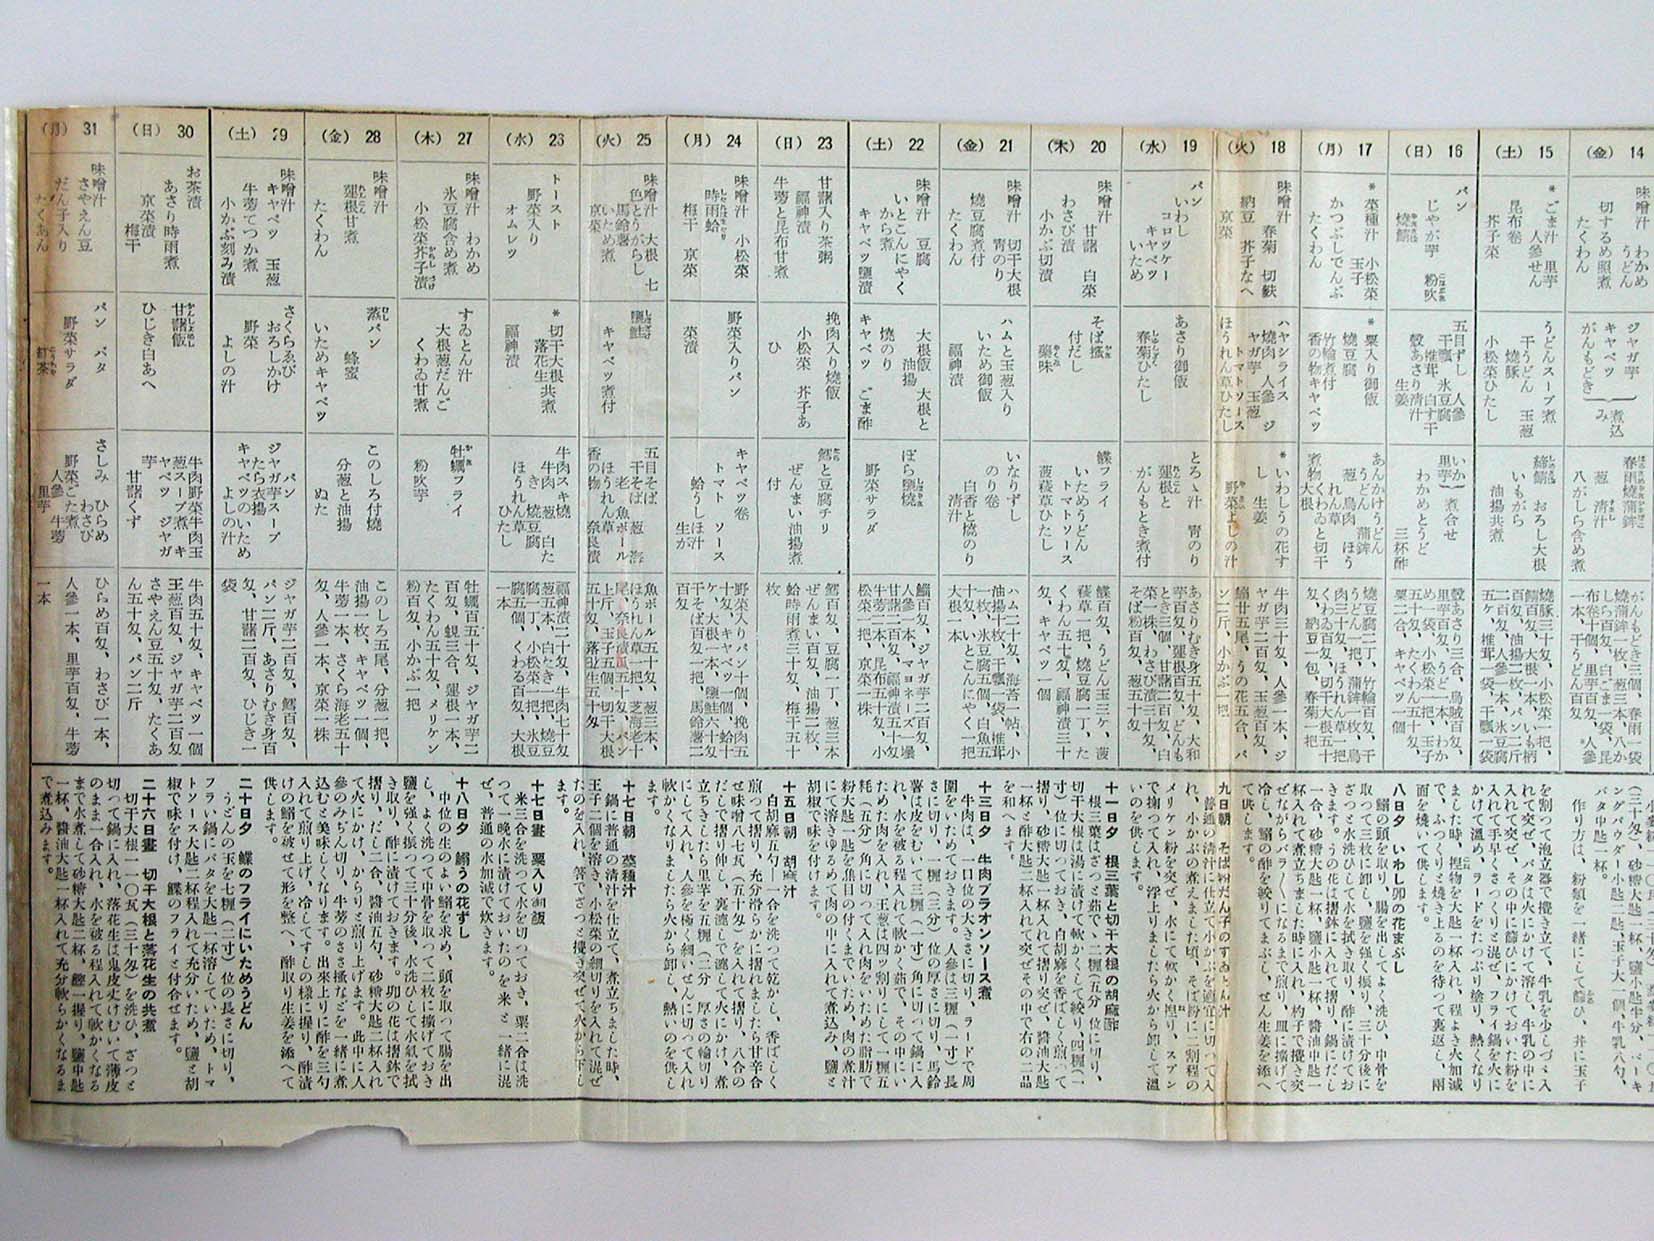 14
(金)
味噌汁 わかめ
うどん
切するめ照煮
たくわん
ジャガ芋
キャベツ
がんもどき
煮込
み
春雨燒蒲鉾
葱 清汁
八がしら含め煮
15
(土)
*ごま汁 里芋
人參せん
昆布卷
芥子菜
うどんスープ煮
干うどん 玉葱
燒豚
小松菜ひたし
締鯖 おろし大根
いもがら
油揚共煮
16
(日)
パン
じやが芋 粉吹
燒鯖
五目ずし 人參
干瓢 氷豆腐
椎茸 白す干
殼あさり清汁
生姜
いか
里芋
煮合せ
わかめとうど
三杯酢
17
(月)
*菜種汁 小松菜
玉子
かつぶしでんぶ
たくわん
*粟入り御飯
燒豆腐
竹輪煮付
香の物キャベツ
あんかけうどん
うどん 蒲鉾
葱 鳥肉 ほう
れん草
煮物くわゐと切干
大根
18
(火)
味噌汁 春菊 切麩
納豆 芥子なへ
京菜
ハヤシライス
燒肉 人參 ジ
ヤガ芋 玉葱
トマトソース
ほうれん草ひたし
*いわしうの花す
し 生姜
野菜よしの汁
19
(水)
パン
いわし
コロッケー
キャベツ
いため
あさり御飯
春菊ひたし
とろゝ汁 靑のり
蓮根と
がんもどき煮付
20
(木)
味噌汁
甘藷 白菜
わさび漬
小かぶ切漬
そば搔
付だし
藥味
鰈フライ
いためうどん
トマトソース
菠薐草ひたし
21
(金)
味噌汁 切干大根
靑のり
燒豆腐煮付
たくわん
ハムと玉葱入り
いため御飯
福神漬
いなりずし
のり卷
白香と燒のり
清汁
22
(土)
味噌汁 豆腐
いとこんにやく
から煮
キャベツ鹽漬
大根飯 大根と
油揚
燒のり
キャベツ ごま酢
ぼら鹽燒
野菜サラダ
23
(日)
甘藷入り茶粥
福神漬
牛蒡と昆布甘煮
挽肉入り燒飯
小松菜 芥子あ
ひ
鱈と豆腐チリ
ぜんまい油揚煮
付
24
(月)
味噌汁 小松菜
時雨蛤
梅干 京菜
野菜入りパン
菜漬
キャベツ卷
トマト ソース
蛤うしほ汁
生が
25
(火)
味噌汁 大根 七
色とうがらし
馬鈴薯
いため煮
京菜
鹽鮭
キャベツ煮付
五目そば
干そば 葱 海
老 魚ボール
ほうれん草
香の物 奈良漬
26
(水)
トースト
野菜入り
オムレツ
*切干大根
落花生共煮
福神漬
牛肉スキ燒
牛肉 葱 白た
き 燒豆腐
ほうれん草
ひたし
27
(木)
味噌汁 わかめ
氷豆腐含め煮
小松菜芥子漬
すゐとん汁
大根葱だんご
くわゐ甘煮
牡蠣フライ
粉吹芋
28
(金)
味噌汁
蓮根甘煮
たくわん
蒸パン
蜂蜜
いためキャベツ
このしろ付燒
分葱と油揚
ぬた
29
(土)
味噌汁
キャベツ 玉葱
牛蒡てつか煮
小かぶ刻み漬
さくらゑび
おろしかけ
野菜
よしの汁
パン
ジャガ芋スープ
たら衣揚
キャベツのいため
よしの汁
30
(日)
お茶漬
あさり時雨煮
京菜漬
梅干
甘藷飯
ひじき白あへ
牛肉野菜牛肉玉
葱スープ煮 キ
ャベツ ジャガ
芋
甘藷くず
31
(月)
味噌汁
さやえん豆
だん子入り
たくあん
パン バタ
野菜サラダ
紅茶
さしみ ひらめ
わさび
野菜ごた煮
人參 牛蒡
里芋
がんもどき三個、春雨一袋
燒蒲鉾一枚、葱三本、八か
しら百匁、白ごま一袋、昆
布卷十個、里芋百匁、人參
一本、干うどん百匁
燒豚三十匁、小松菜一把、
鯖百匁、大根一本、いも柄
百匁、油揚二枚、パン二斤
玉葱二百匁、人參一本、氷豆腐
五ヶ、椎茸一袋、干瓢一袋
殼あさり三合、烏賊百匁、
里芋百匁、うど一本、わか
め一袋、たくわん五十匁、
人參二本、キャベツ一個
燒豆腐二丁、竹輪百匁、干
うどん一把、蒲鉾一枚、鳥
肉五十匁、ほうれん草一把
くわゐ百匁、切干大根五十
匁、納豆一包、春菊一把
牛肉三十匁、人參一本、ジ
ヤガ芋二百匁、玉葱百匁、
鰯廿五尾、うの花五合、パ
ン二斤、小かぶ一把
あさりむき身五十匁、大和
芋百匁、蓮根百匁、どんも
とき三個、甘藷二百匁、白
菜一株、わさび漬三十匁、
そば粉百匁、葱五十匁
鰈百匁、うどん玉三ケ、菠
薐草一把、燒豆腐一丁、た
くわん五十匁、福神漬三十
匁、キャベツ一個
ハム二十匁、海苔一帖、小
揚十枚、干瓢一袋、椎茸
一袋、氷豆腐五個、白魚五
十匁、いとこんにやく一把
大根一本
鯔百匁、ジャガ芋二百匁、
人參一本、マヨネーズ一壜
甘藷二百匁、福神漬五十匁
牛蒡二本、昆布五十匁、小
松菜一把、京菜一株
鱈百匁、豆腐一丁、葱三本
ぜんまい百匁、油揚二枚、
蛤時雨煮三十匁、梅干五十
枚
野菜入りパン十個、挽肉五
十匁、キャベツ一個、蛤十
ケ、大根一本、鹽鮭六十匁
干そば百匁一把、馬鈴薯二
百匁
魚ボール五十匁、葱三本、
ほうれん草一把、芝海老十
尾、奈良漬瓜五十匁、パン
一斤、玉子五個、切干大根
五十匁、落花生五十匁
福神漬二十匁、牛肉七十匁
葱五本、白たき一把、燒豆
腐二丁、小松菜一把、氷豆
腐五個、くわゐ百匁、大根
一本
牡蠣百五十匁、ジャガ芋二
百匁、蜆三合、蓮根一本、
たくわん五十匁、メリケン
粉百匁、小かぶ一把
このしろ五尾、分葱一把、
油揚一枚、キャベツ一個
牛蒡一本、さくら海老五十
匁、人參一本、京菜一株
ジャガ芋二百匁、鱈百匁、
パン二斤、あさりむき身百
匁、甘藷二百匁、ひじき一
袋
牛肉五十匁、キャベツ一個
玉葱百匁、ジャガ芋二百匁
さやえん豆五十匁、たくあ
ん五十匁、パン二斤
ひらめ百匁、わさび一本、
人參一本、里芋百匁、牛蒡
一本
(三十匁)、砂糖大匙一杯、鹽小匙半分、ベーキ
ングパウダー小匙一杯、玉子大一個、牛乳八勺、
バタ中匙一杯。
作り方は、粉類を一緒にして篩ひ、丼に玉子
を割つて泡立器で攪き立て、牛乳を少しづゝ入
れて突ぜ、バタは火にかけて溶し、牛乳の中に
入れて突ぜ、その中に篩ひにかけておいた粉を
入れて手早くさつくりと混ぜ、フライ鍋を火に
かけて溫め、ラードをたつぷり塗り、熱くなり
ました時、捏物を大匙一杯入れ、程よき火加減
で、ふつくりと燒き上るのを待つて裏返し、兩
面を燒いて供します。
八日夕 いわし卯の花まぶし
鰯の頭を取り、腸を出してよく洗ひ、中骨を
取つて三枚に卸し、鹽を強く振り、三十分後に
ざつと水洗ひして水を拭き取り、酢に漬けてお
きます。うの花は摺鉢に入れて摺り、鍋にだし
一合、砂糖大匙一杯、鹽小匙一杯、醬油中匙一
杯入れて煮立ちました時に入れ、杓子で攪き突
ぜながらバラ〳〵になるまで煎り、皿に擴げて
冷し、鰯の酢を絞りてまぶし、ぜん生姜を添へ
て供します。
九日朝 そば粉だん子のすゐとん汁
普通の清汁に仕立て小かぶを適宜に切つて入
れ、小かぶの煮えました頃、そば粉に二割程の
メリケン粉を突ぜ、水にて軟かく捏り、スプン
で掬つて入れ、浮上りましたら火から卸して溫
いのを供します。
十一日夕 根三葉と切干大根の胡麻酢
根三葉はざつと茹でゝ二糎(五分)位に切り、
切干大根は湯に漬けて軟かくして絞り、四糎(一
寸)位に切つておき、白胡麻を香ばしく煎つて
摺り、砂糖大匙一杯入れて摺り突ぜ、醬油大匙
一杯と酢大匙二杯入れて突ぜその中で右の二品
を和へます。
十三日夕 牛肉ブラオンソース煮
牛肉は、一口位の大きさに切り、ラードで周
圍をいためておきます。人參は三糎(一寸)長
さに切り、一糎(三分)位の厚さに切り、馬鈴
薯は皮をむいて三糎(一寸)角に切つて鍋に入
れ、水を被る程入れて軟かく茹で、その中にい
ためた肉を入れ、玉葱は四ツ割りにして一糎五
粍(五分)角に切つて入れ肉をいためた脂肪で
粉大匙一匙を焦目の付くまでいため、肉の煮汁
にて溶きゆるめて肉の中に入れて煮込み、鹽と
胡椒で味を付けます。
十五日朝 胡麻汁
白胡麻五勺―一合を洗つて乾かし、香ばしく
煎つて摺り、充分滑らかに摺れましたら甘辛合
せ味噌八七瓦(五十匁)を入れて摺り、八合の
だしで摺りのばし、裏漉しで漉して火にかけ、煮
立ちきしたら里芋を五糎(二分)厚さの輪切り
にして入れ、人參を極く細いせんに切つて入れ
軟かくなりましたら火から卸し、熱いのを供し
ます。
十七日朝 菜種汁
鍋に普通の清汁を仕立て、煮立ちました時、
玉子二個を溶き、小松菜の細切りを入れて混ぜ
たのを入れ、箸でざつと攪き突ぜて火から下し
ます。
十七日晝 粟入り御飯
米三合を洗つて水を切つておき、粟二合は洗
つて一晩水に漬けておいたのを米と一緒に混
ぜ、普通の水加減で炊きます。
十八日夕 鰯うの花ずし
中位の生のよい鰯を求め、頭を取つて腸を出
し、よく洗つて中骨を取つて二枚に擴げておき
鹽を強く振つて三十分後、水洗ひして水氣を拭
き取り、酢に漬けておきます。卯の花は摺鉢で
摺り、だし二合、醬油五勺、砂糖大匙二杯入れ
て火にかけ、からりと煎り上げます。此中に人
參のみぢん切り、牛蒡のさゝ搔などを一緒に煮
込むと美味しくなります。出來上りに酢を三勺
入れて煎り上げ、冷してすしの樣に握り、酢漬
けの鰯を被せて形を整へ、酢取り生姜を添へて
供します。
二十日夕 鰈のフライにいためうどん
うどんの玉を七糎(二寸)位の長さに切り、
フライ鍋にバタを大匙一杯溶していため、トマ
トソース大匙二杯程入れて充分いため、鹽と胡
椒で味を付け、鰈のフライと付合せます。
二十六日晝 切干大根と落花生の共煮
切干大根一一〇瓦(三十匁)を洗ひ、ざつと
切つて鍋に入れ、落花生は鬼皮丈けむいて薄皮
のまま一合入れ、水を被る程入れて軟かくなる
まで水煮して砂糖大匙二杯、鰹一握り、鹽中匙
一杯、醬油大匙一杯入れて充分軟らかくなるま
で煮込みます。